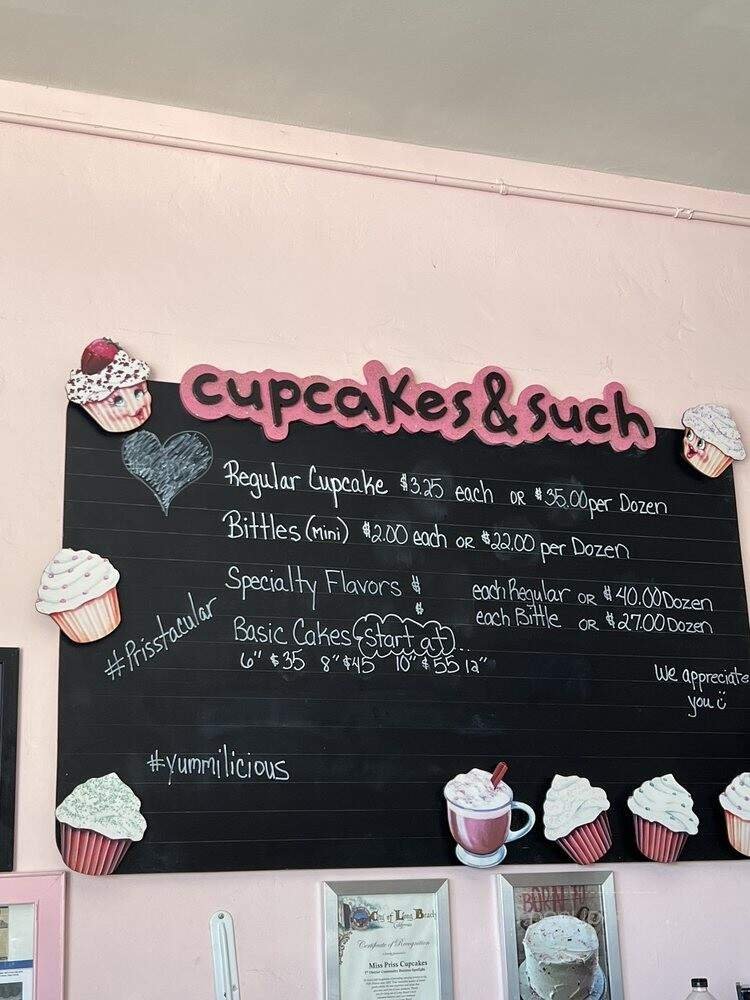 cupcakes & such
Regular Cupcake $3.25 each OR $35.00 per Dozen
Bittles (mini) $2.00 each OR $22.00 per Dozen
Specialty Flavors $ each Regular OR $40.00 Dozen
$ each Bittle OR $27.00 Dozen
Basic Cakes start at...
6" $35 8" $45 10" $55 12"
#Prisstacular
We appreciate
you
#yummilicious
City of Long Beach
California
Certificate of Recognition
Miss Priss Cupcakes
BORN TO